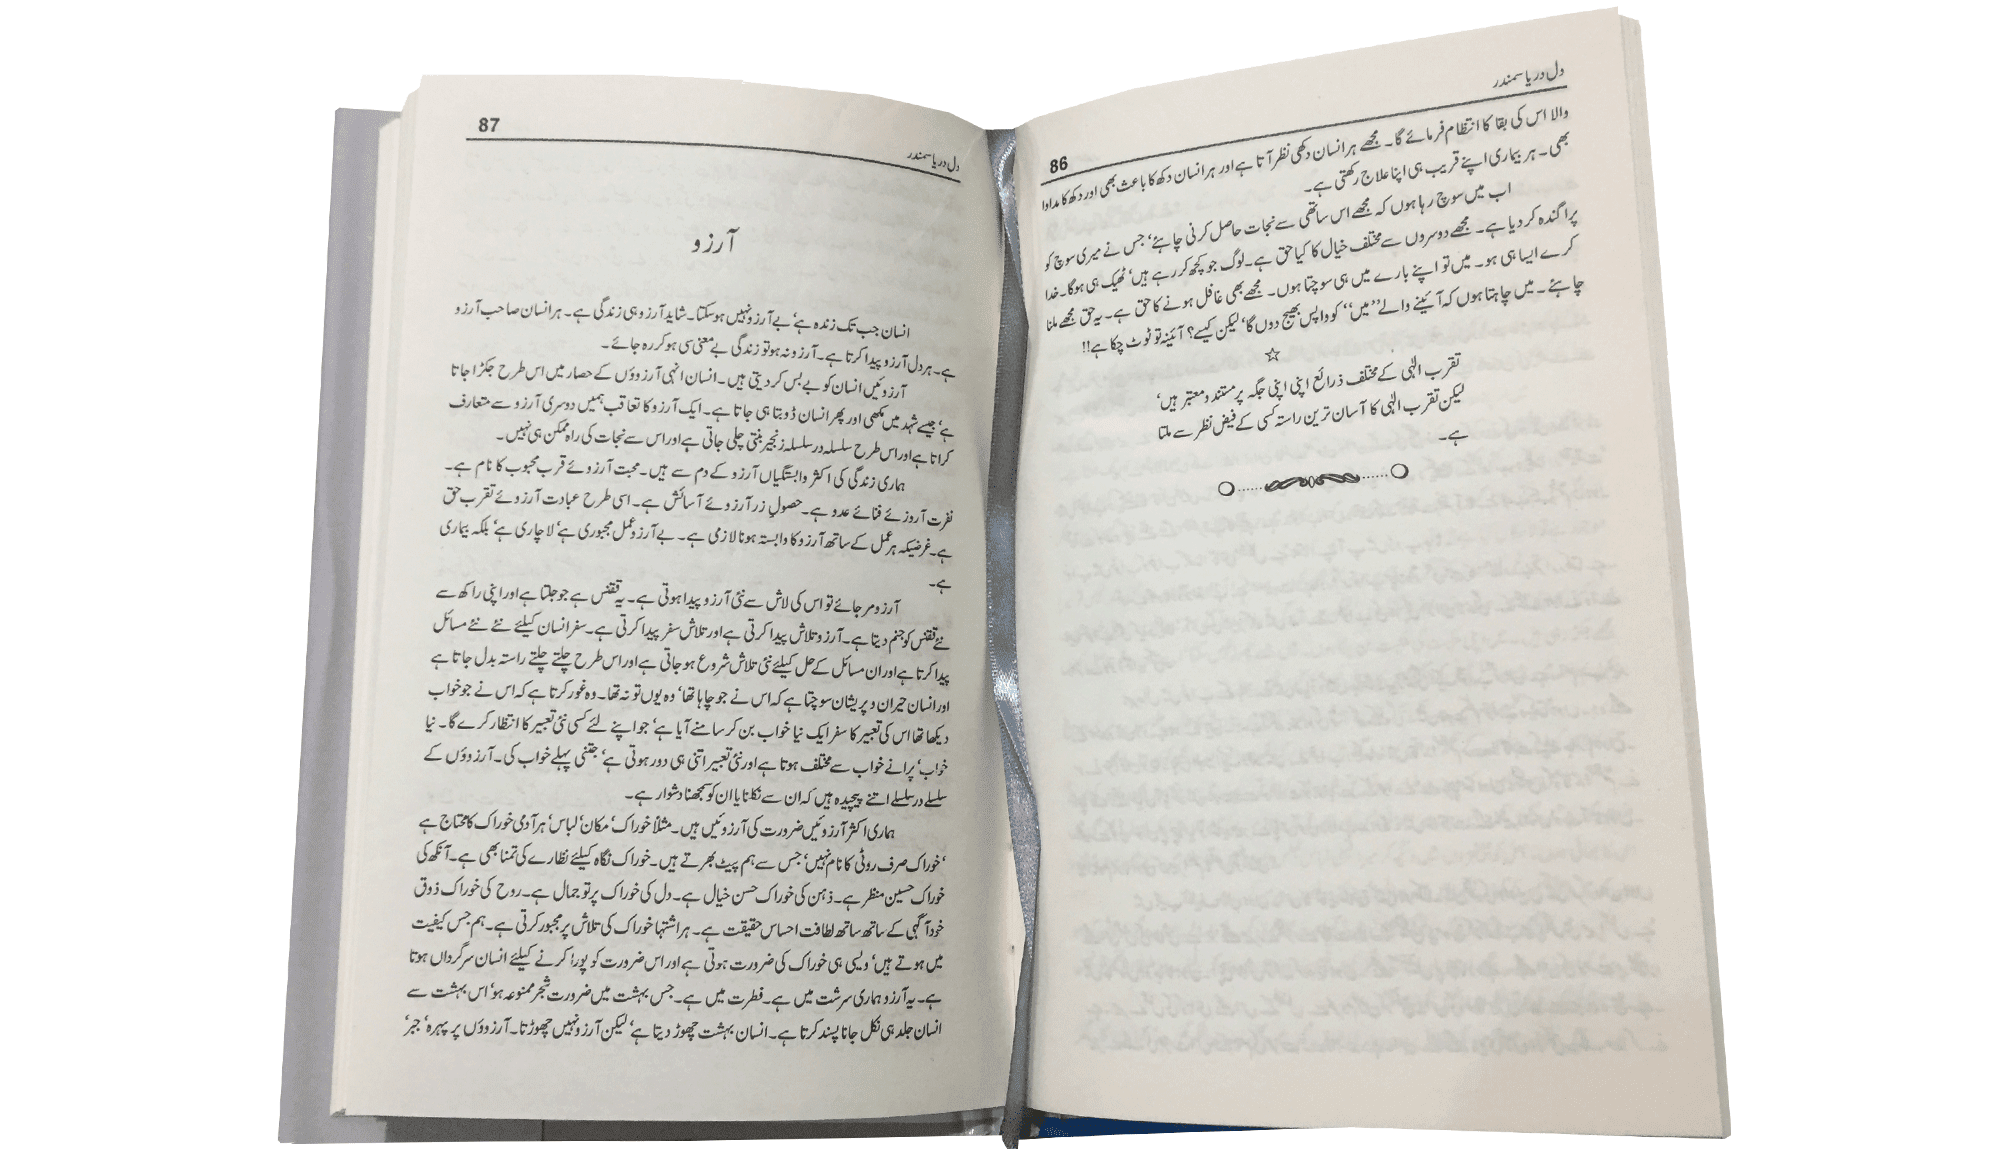 دل دریا سمندر
86
والا اس کی بقا کا انتظام فرمائے گا۔ مجھے ہر انسان دکھی نظر آتا ہے اور ہر انسان دکھ کا باعث بھی اور دکھ کا مداوا
بھی۔ ہر بیماری اپنے قریب ہی اپنا علاج رکھتی ہے۔
اب میں سوچ رہا ہوں کہ مجھے اس ساتھی سے نجات حاصل کرنی چاہئے‘ جس نے میری سوچ کو
پراگندہ کر دیا ہے۔ مجھے دوسروں سے مختلف خیال کا کیا حق ہے۔ لوگ جو کچھ کر رہے ہیں‘ ٹھیک ہی ہوگا۔ خدا
کرے ایسا ہی ہو۔ میں تو اپنے بارے میں ہی سوچتا ہوں۔ مجھے بھی غافل ہونے کا حق ہے۔ یہ حق مجھے ملنا
چاہئے۔ میں چاہتا ہوں کہ آئینے والے ’’میں‘‘ کو واپس بھیج دوں گا‘ لیکن کیسے؟ آئینہ تو ٹوٹ چکا ہے!!
☆
تقرب الٰہی کے مختلف ذرائع اپنی اپنی جگہ پر مستند و معتبر ہیں‘
لیکن تقرب الٰہی کا آسان ترین راستہ کسی کے فیض نظر سے ملتا
ہے۔
87
دل دریا سمندر
آرزو
انسان جب تک زندہ ہے‘ بے آرزو نہیں ہو سکتا۔ شاید آرزو ہی زندگی ہے۔ ہر انسان صاحب آرزو
ہے۔ ہر دل آرزو پیدا کرتا ہے۔ آرزو نہ ہو تو زندگی بے معنی سی ہو کر رہ جائے۔
آرزوئیں انسان کو بے بس کر دیتی ہیں۔ انسان انہی آرزوؤں کے حصار میں اس طرح جکڑا جاتا
ہے‘ جیسے شہد میں مکھی اور پھر انسان ڈوبتا ہی جاتا ہے۔ ایک آرزو کا تعاقب ہمیں دوسری آرزو سے متعارف
کراتا ہے اور اس طرح سلسلہ در سلسلہ زنجیر بنتی چلی جاتی ہے اور اس سے نجات کی راہ ممکن ہی نہیں۔
ہماری زندگی کی اکثر وابستگیاں آرزو کے دم سے ہیں۔ محبت آرزوئے قرب محبوب کا نام ہے۔
نفرت آروزئے فنائے عدو ہے۔ حصولِ زر آرزوئے آسائش ہے۔ اسی طرح عبادت آرزوئے تقرب حق
ہے۔ غرضیکہ ہر عمل کے ساتھ آرزو کا وابستہ ہونا لازمی ہے۔ بے آرزو عمل مجبوری ہے‘ لاچاری ہے‘ بلکہ بیماری
ہے۔
آرزو مر جائے تو اس کی لاش سے نئی آرزو پیدا ہوتی ہے۔ یہ ققنس ہے جو جلتا ہے اور اپنی راکھ سے
نئے ققنس کو جنم دیتا ہے۔ آرزو تلاش پیدا کرتی ہے اور تلاش سفر پیدا کرتی ہے۔ سفر انسان کیلئے نئے نئے مسائل
پیدا کرتا ہے اور ان مسائل کے حل کیلئے نئی تلاش شروع ہو جاتی ہے اور اس طرح چلتے چلتے راستہ بدل جاتا ہے
اور انسان حیران و پریشان سوچتا ہے کہ اس نے جو چاہا تھا‘ وہ یوں تو نہ تھا۔ وہ غور کرتا ہے کہ اس نے جو خواب
دیکھا تھا اس کی تعبیر کا سفر ایک نیا خواب بن کر سامنے آیا ہے‘ جو اپنے لئے کسی نئی تعبیر کا انتظار کرے گا۔ نیا
خواب‘ پرانے خواب سے مختلف ہوتا ہے اور نئی تعبیر اتنی ہی دور ہوتی ہے‘ جتنی پہلے خواب کی۔ آرزوؤں کے
سلسلے در سلسلے اتنے پیچیدہ ہیں کہ ان سے نکلنا یا ان کو سمجھنا دشوار ہے۔
ہماری اکثر آرزوئیں ضرورت کی آرزوئیں ہیں۔ مثلاً خوراک‘ مکان‘ لباس‘ ہر آدمی خوراک کا محتاج ہے
‘ خوراک صرف روٹی کا نام نہیں‘ جس سے ہم پیٹ بھرتے ہیں۔ خوراک نگاہ کیلئے نظارے کی تمنا بھی ہے۔ آنکھ کی
خوراک حسین منظر ہے۔ ذہن کی خوراک حسن خیال ہے۔ دل کی خوراک پرتو جمال ہے۔ روح کی خوراک ذوق
خود آگہی کے ساتھ ساتھ لطافت احساس حقیقت ہے۔ ہر اشتہا خوراک کی تلاش پر مجبور کرتی ہے۔ ہم جس کیفیت
میں ہوتے ہیں‘ ویسی ہی خوراک کی ضرورت ہوتی ہے اور اس ضرورت کو پورا کرنے کیلئے انسان سرگرداں ہوتا
ہے۔ یہ آرزو ہماری سرشت میں ہے۔ فطرت میں ہے۔ جس بہشت میں ضرورت شجر ممنوعہ ہو‘ اس بہشت سے
انسان جلد ہی نکل جانا پسند کرتا ہے۔ انسان بہشت چھوڑ دیتا ہے‘ لیکن آرزو نہیں چھوڑتا۔ آرزوؤں پر پہرہ‘ جبر‘